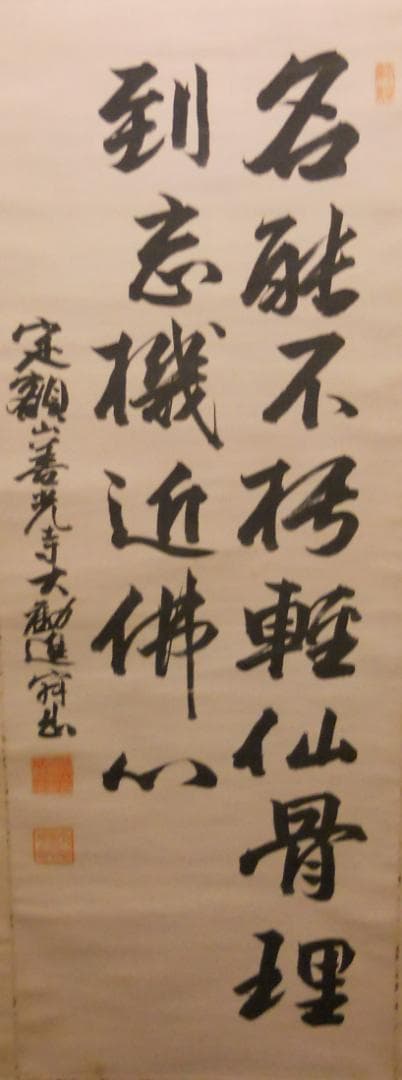 名能不朽輕仙骨理
到忘機近佛心
定額山善光寺大勧進